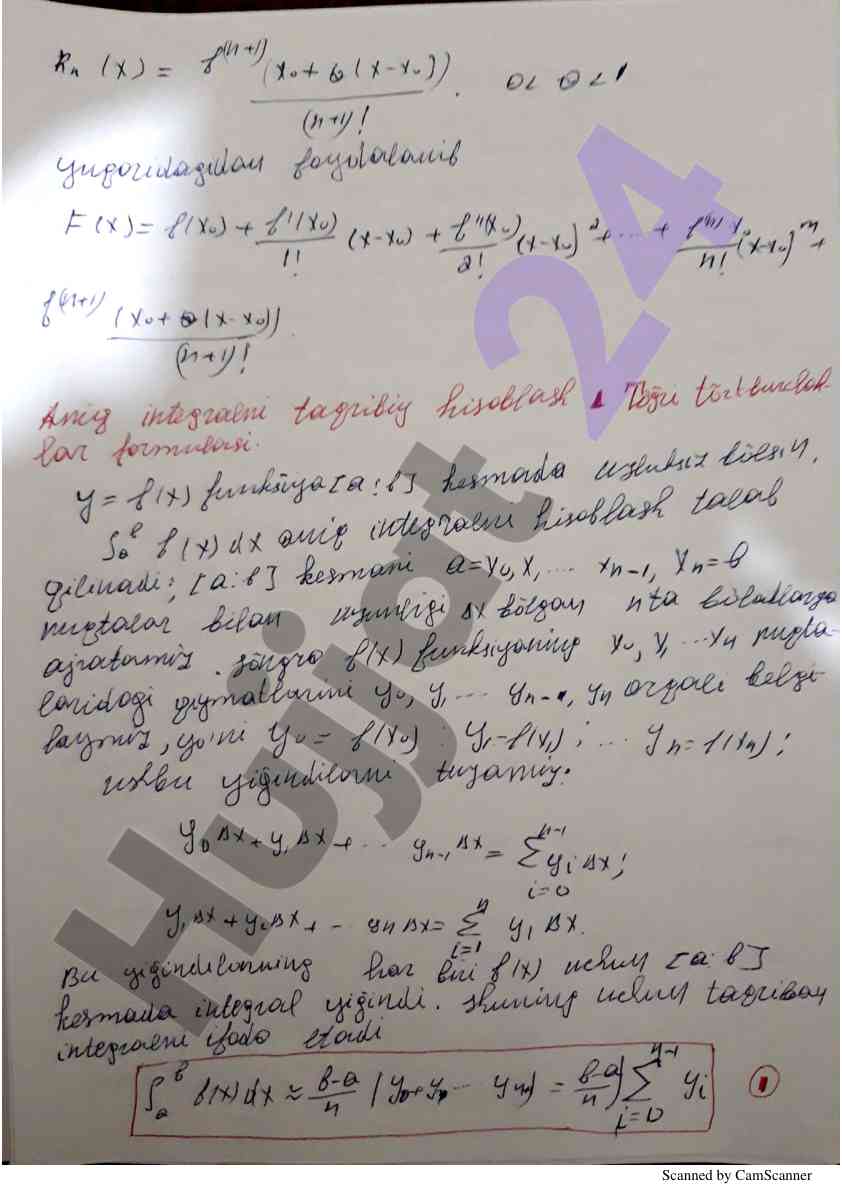 Rn (x) = f^(n+1) (x0 + θ (x-x0)) / (n+1)! . 0 < θ < 1
yuqoridagidan foydalanib
F(x) = f(x0) + f'(x0)/1! (x-x0) + f''(x0)/2! (x-x0)^2 + ... + f^(n) x0/n! (x-x0)^n +
f^(n+1) (x0 + θ(x-x0)) / (n+1)!
Aniq integralni taqribiy hisoblash. Tõgri tõrtburchak-
lar formulasi.
y = f(x) funksiya [a:b] kesmada uzluksiz bõlsin.
∫a^b f(x) dx aniq integralni hisoblash talab
qilinadi; [a:b] kesmani a=x0, x1 ... xn-1, xn=b
nuqtalar bilan uzunligi Δx bõlgan nta bõlaklarga
ajratamiz. sõngra f(x) funksiyaning x0, x1 ... xn nuqta-
laridagi qiymatlarini y0, y1 ... yn-1, yn orqali belgi-
laymiz, ya'ni y0 = f(x0) : y1 = f(x1) ; ... yn = f(xn) ;
ushbu yiğindilarni tuzamiz:
y0 Δx + y1 Δx + ... yn-1 Δx = Σ_{i=0}^{n-1} yi Δx ;
y1 Δx + y2 Δx + ... yn Δx = Σ_{i=1}^{n} y1 Δx.
Bu yiğindilarning har biri f(x) uchun [a:b]
kesmada integral yiğindi. shuning uchun taqriban
integralni ifoda etadi
∫a^b f(x) dx ≈ b-a/n (y0 + y1 ... yn) = b-a/n) Σ_{i=0}^{n-1} yi 1
Hujjat 24
Scanned by CamScanner